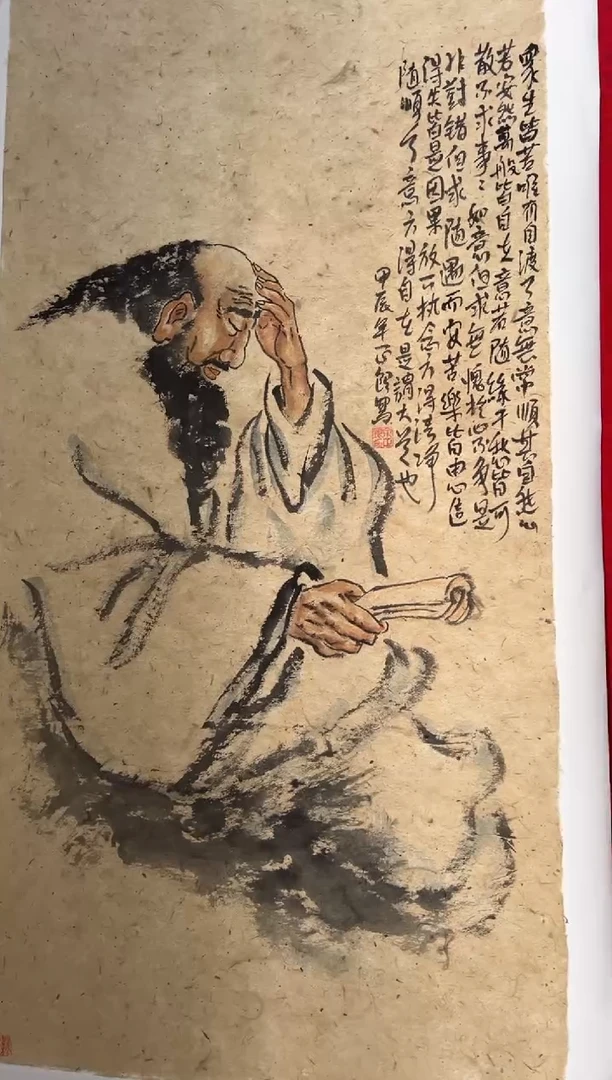 眾生皆苦唯有自渡了意無常順其自然心
若安然萬般皆自在意若随緣千愁皆可
散不求事〻如意但求無愧於心不爭是
非對錯但求随遇而安苦樂皆由心造
得失皆是因果放下执念方得清净
随順了意方得自在是謂大道也
甲辰年正寫